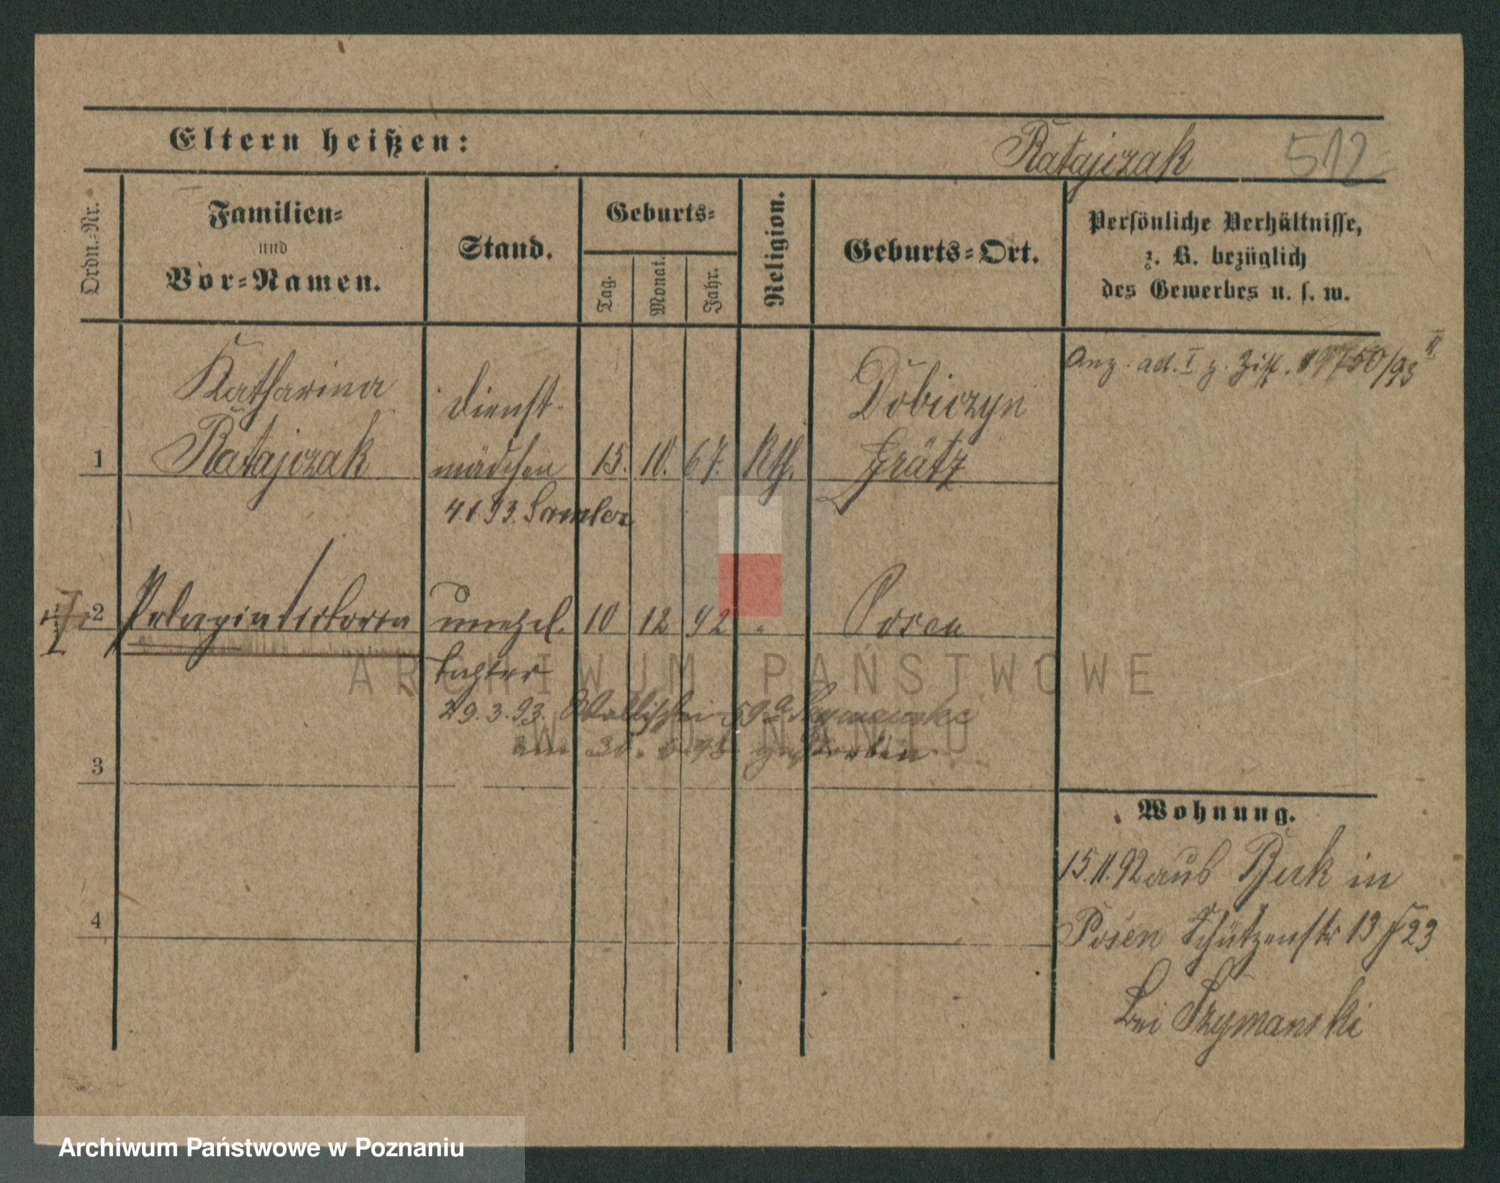 Eltern heißen:
Ratajczak 512
Ordn.-Nr.
Familien-
und
Vor-Namen.
Stand.
Geburts-
Tag.
Monat.
Jahr.
Religion.
Geburts-Ort.
Persönliche Verhältnisse,
z. B. bezüglich
des Gewerbes u. s. w.
Katharina
Ratajczak
Dienst-
mädchen
1
15. 10. 67. Kth.
Dobiczyn
Grätz
4.1.93.
2
Pelagia Victoria
unehel.
10 12 92 "
Posen
Tochter
29.3.93. Wallischei
gestorben
3
4
Wohnung.
15.11.92 aus Buk in
Posen Schützenstr 13 23
bei Szymanski
ARCHIWUM PAŃSTWOWE
W POZNANIU
Archiwum Państwowe w Poznaniu